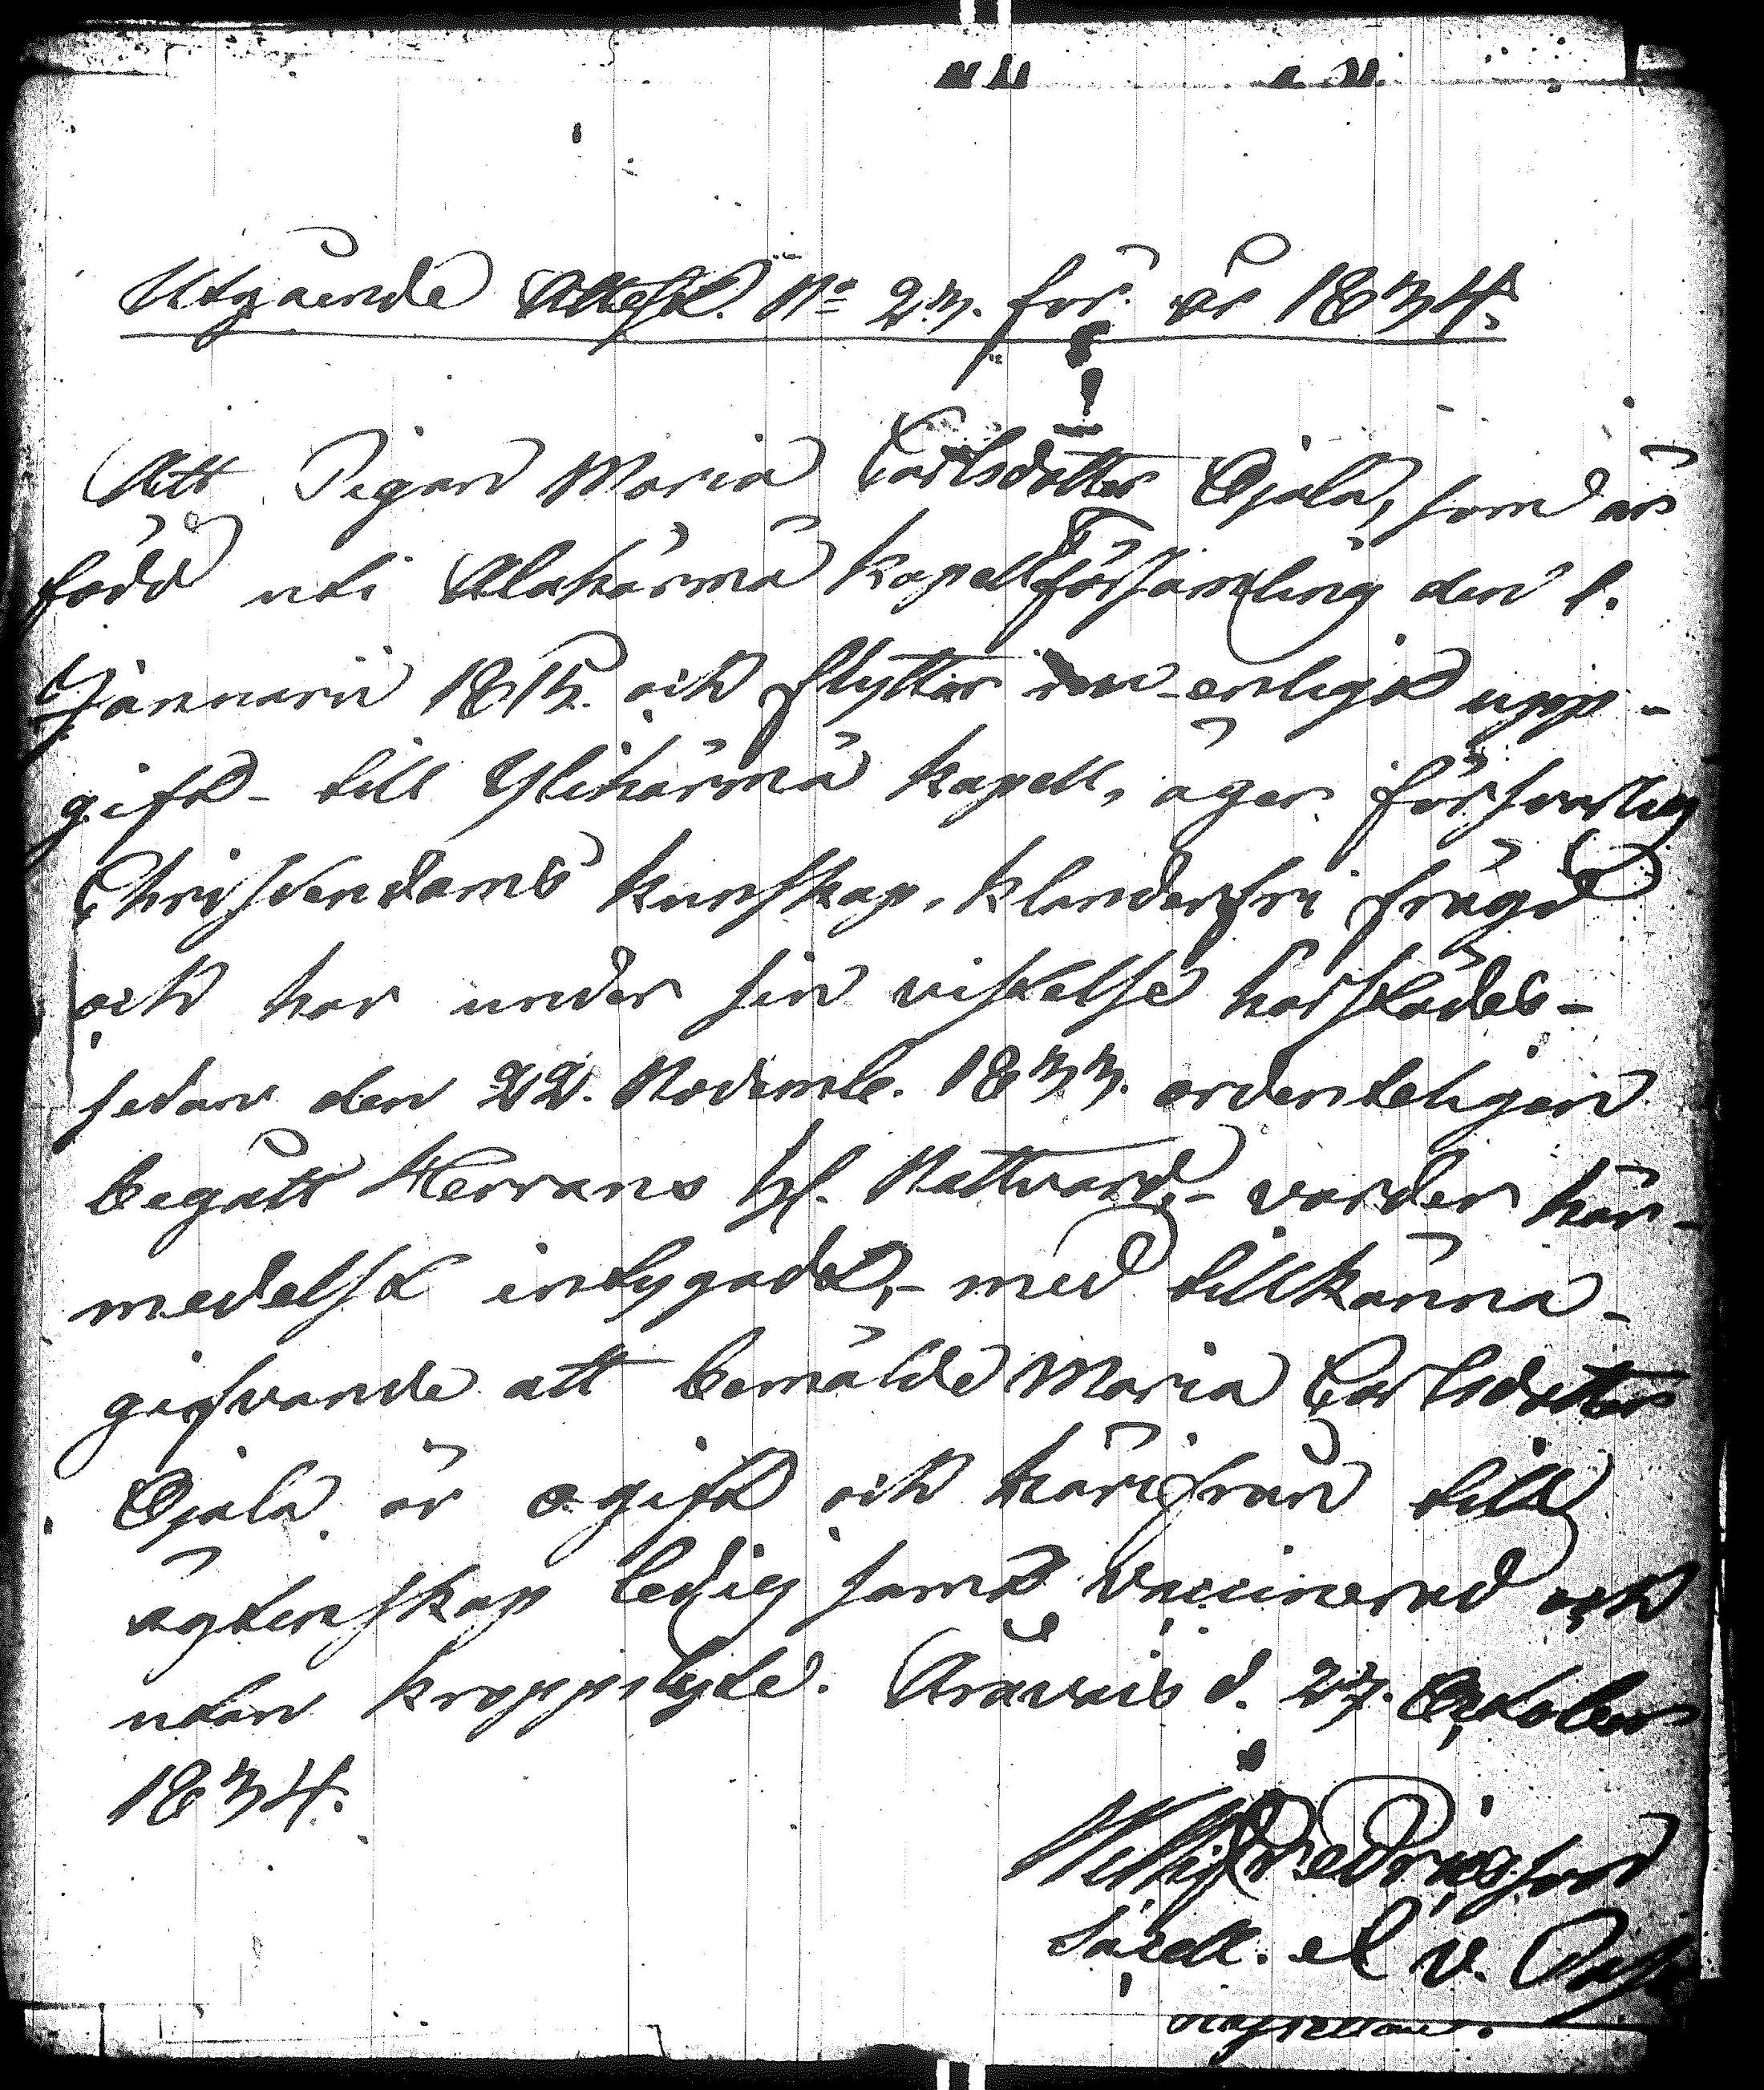 Utgående Attest. No 23. för år 1834.
Att Pigan Maria Carlsdotter Ojala, som är
född uti Alahärmä Kapellförsamling den 1.
Januarii 1815. och flyttar enligt upp-
gift - till Ylihärmä Kapell, äger försvarlig
Christendoms kunskap, klanderfri frägd
och har under sin vistelse härstädes -
sedan den 22. Novemb. 1833. ordenteligen
begått Herrans Hl. Nattvard, - varder här-
medelst intygadt, - med tillkänna-
gifvande att bemälde Maria Carlsdotter
Ojala är ogift och härifrån till
ägtenskap ledig samt vaccinerad och
utan kroppslyte. Oravais d. 27. October
1834.
Fredricsson
Sacell. et V. Past.